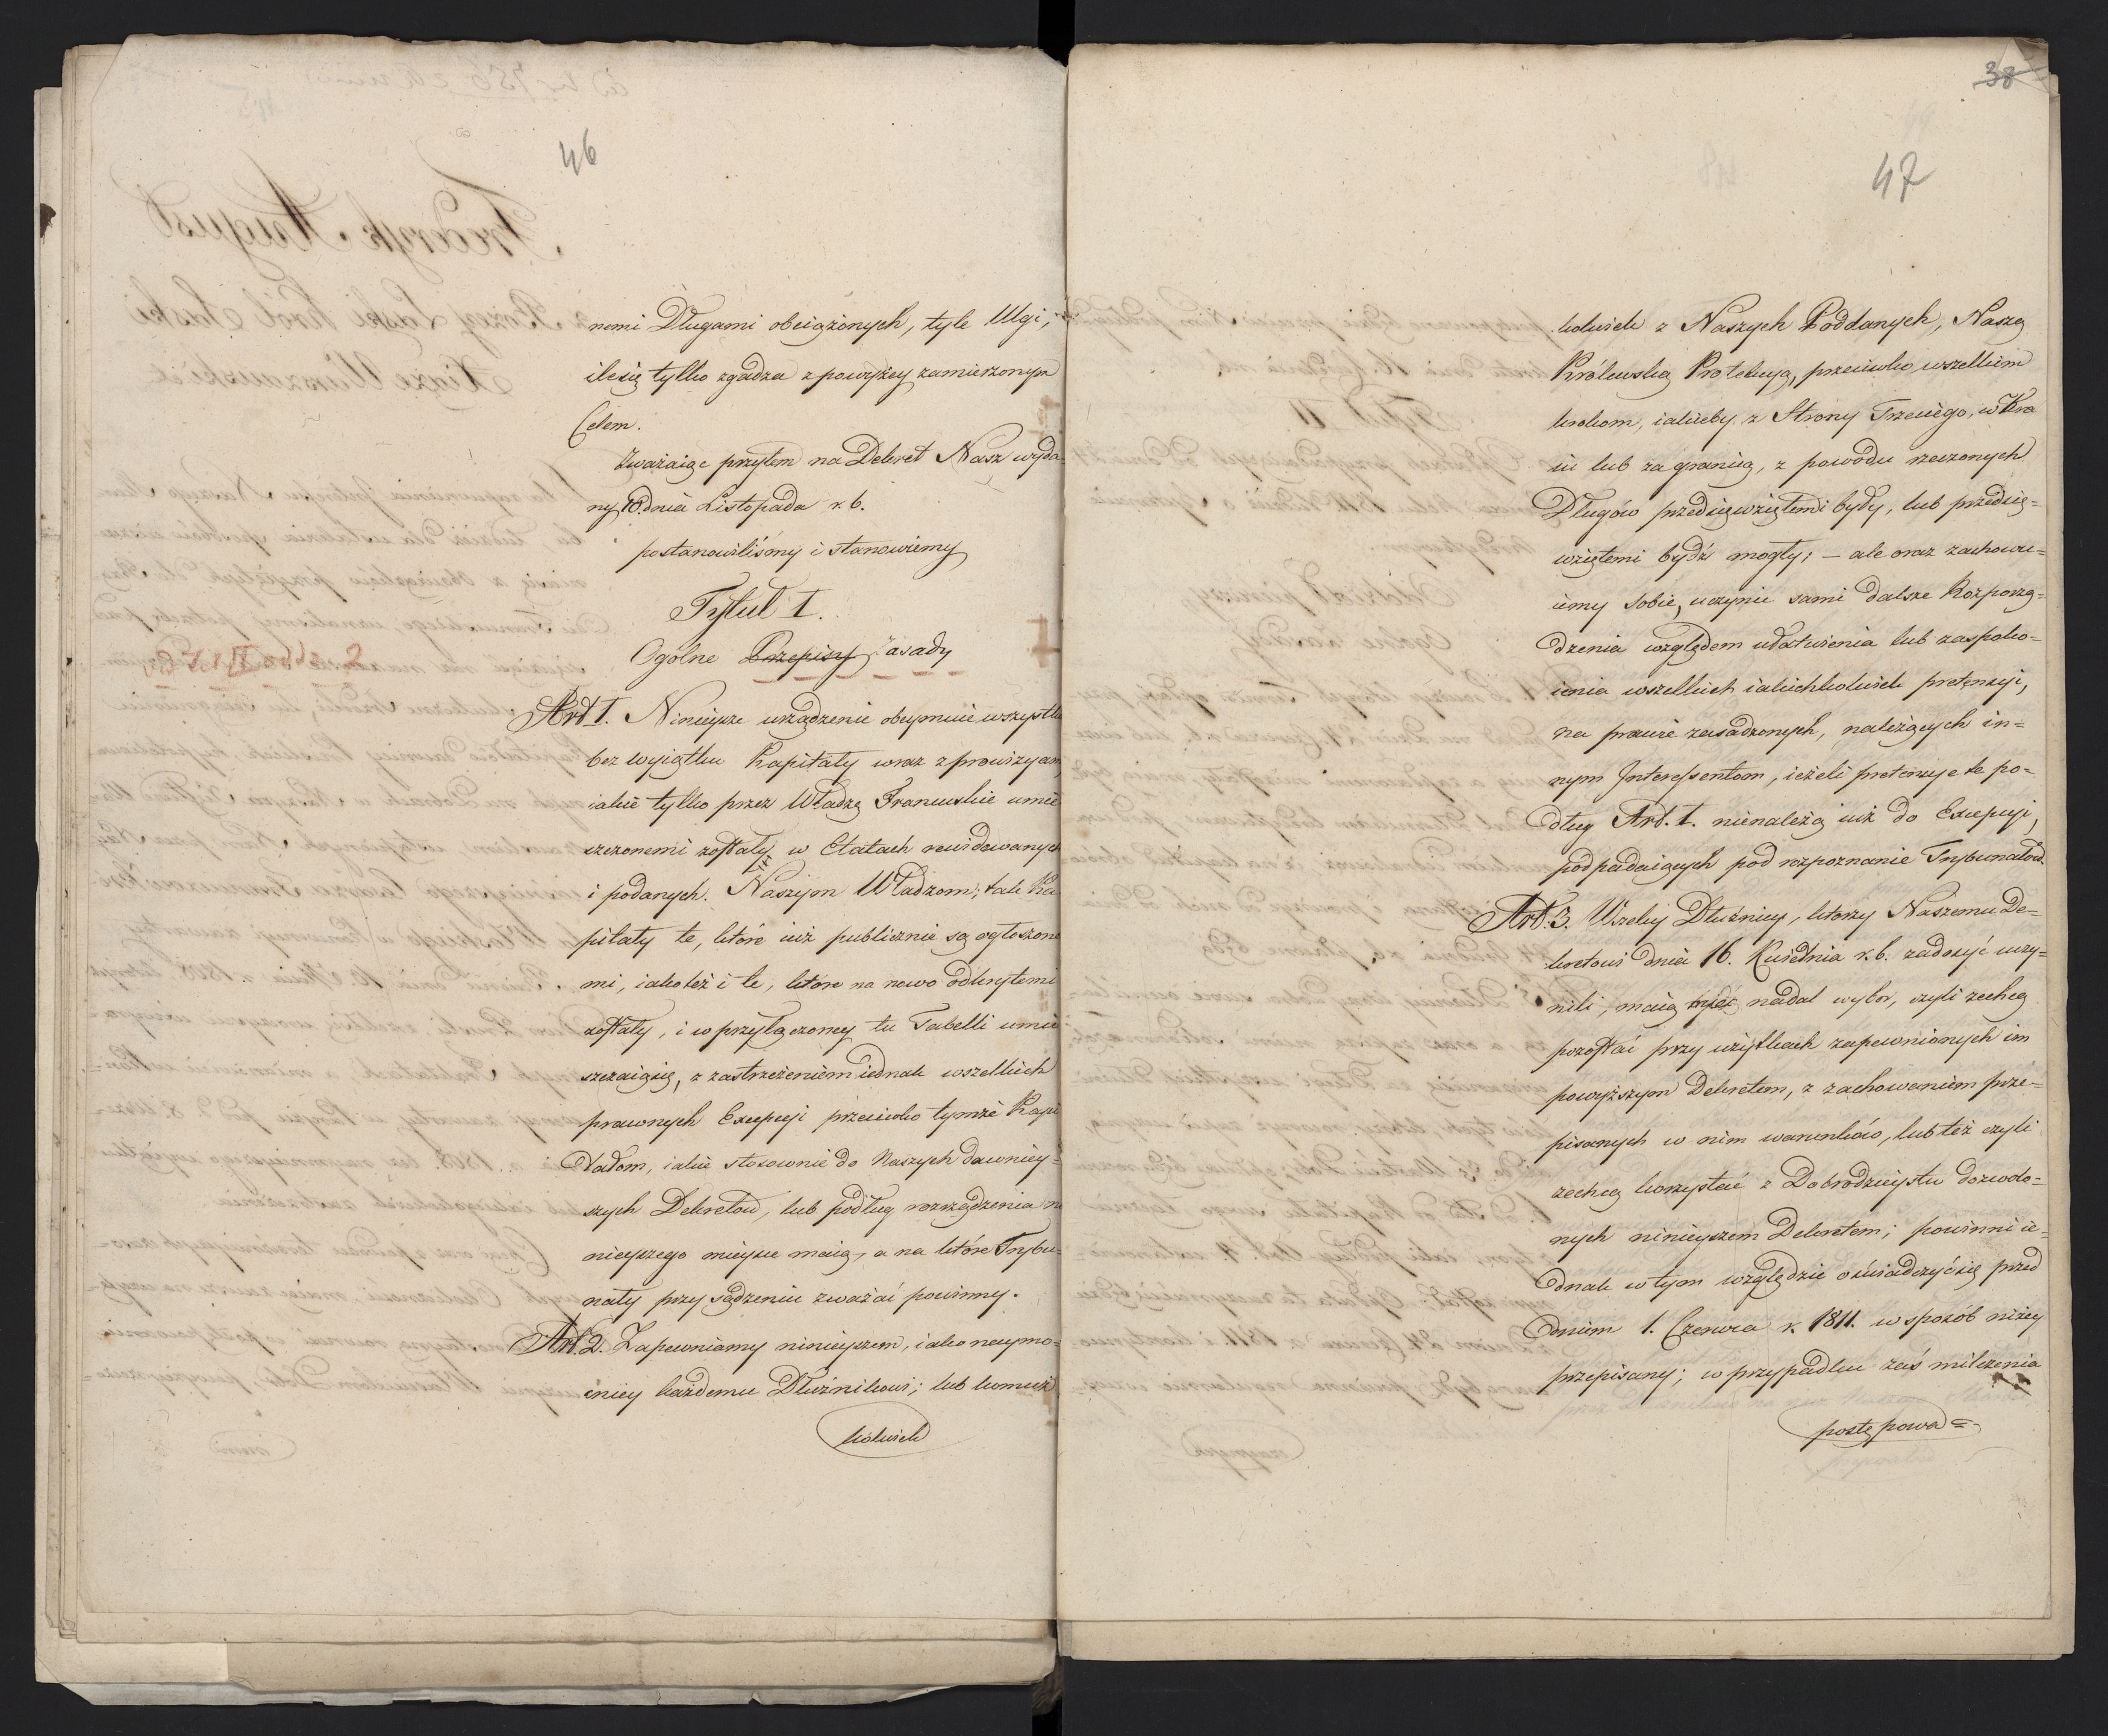 46
nemi Długami obciążonych, tyle Ulgi,
ile się tylko zgadza z powyżey zamierzonym
Celem.
Zważaiąc przytem na Dekret Nasz wyda-
ny 10. dnia Listopada r. b.
postanowiliśmy i stanowiemy
Tytuł I.
Ogólne Przepisy Zasady
Art. 1. Ninieysze urządzenie obeymuie wszystk
bez wyiątku Kapitały wraz z prowizyam
iakie tylko przez Władzę Francuskie umie
szczonemi zostały w Etatach rewidowanych
i podanych Naszym Władzom; tak Ka
pitały te, które iuż publicznie są ogłoszone
mi, iako też i te, które na nowo odkrytemi
zostały, i w przyłączoney tu Tabelli umie
szczaią się, z zastrzeżeniem iednak wszelkich
prawnych Excepcyi przeciwko tymże Kapi
tałom, iakie stosownie do Naszych dawniey=
szych Dekretów, lub podług rozrządzenia ni
nieyszego mieysce maią, a na które Trybu=
nały przy sądzeniu zważać powinny.
Art. 2. Zapewniamy ninieyszem, iako naymo=
cniey każdemu Dłużnikowi; lub komuż
kolwiek
38
47
kolwiek z Naszych Poddanych, Naszą
Królewską Protekcyą, przeciwko wszelkim
krokom, iakieby z Strony Trzeciego, w Kra
iu lub za granicą, z powodu rzeczonych
Długów przedsięwziętemi były, lub przedsię=
wziętemi bydź mogły; – ale oraz zachowu=
iemy sobie, uczynić sami dalsze Rozporzą=
dzenia względem ułatwienia lub zaspoko=
ienia wszelkich iakichkolwiek pretensyi,
na prawie zasadzonych, należących in=
nym Interessentom, ieżeli pretensye te po=
dług Art. 1. nienależą iuż do Excepcyi,
podpadaiących pod rozpoznanie Trybunałów.
Art. 3. Wszelcy Dłużnicy, którzy Naszemu De=
kretowi dnia 16. Kwietnia r. b. zadosyć uczy=
nili, maią nadal wybor, czyli zechcą
pozostać przy użytkach zapewnionych im
powyższym Dekretem, z zachowaniem prze=
pisanych w nim warunków, lub też czyli
zechcą korzystać z Dobrodzieystw dozwolo=
nych ninieyszem Dekretem; powinni ie=
dnak w tym względzie oświadczyć się przed
dniem 1. Czerwca r. 1811. w sposób niżey
przepisany; w przypadku zaś milczenia
postępowa=